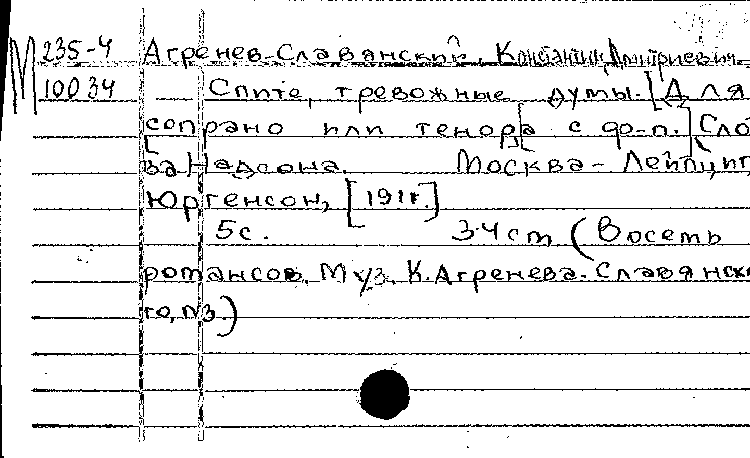 М 235-4 Агренев-Славянский, Константин Дмитриевич.
10034 Спите, тревожные думы. [Для
сопрано или тенора] с ф-п.] [Сло
ва Надсона. Москва-Лейпциг,
Юргенсон, [191 г.]
5с. 34 cm (Восемь
романсов. Муз. К. Агренева-Славянско
го, №3.)